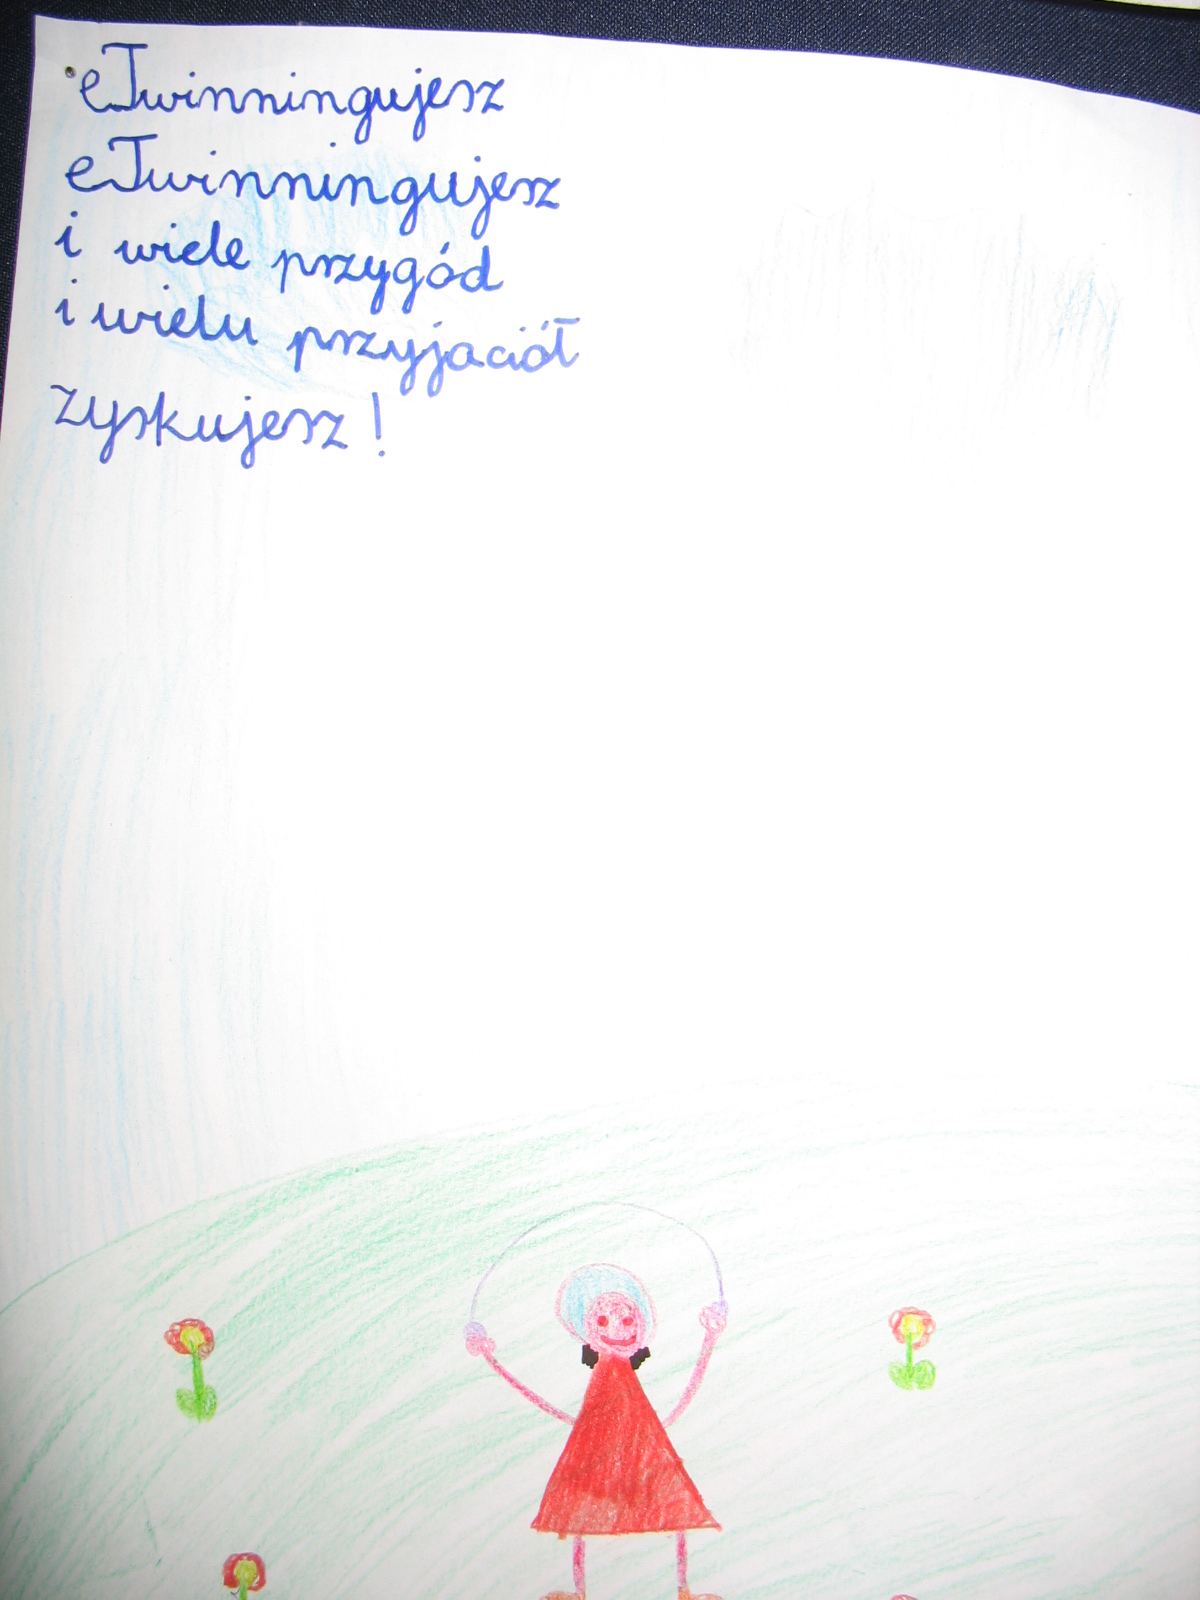 eTwinningujesz
eTwinningujesz
i wiele przygód
i wielu przyjaciół
zyskujesz!